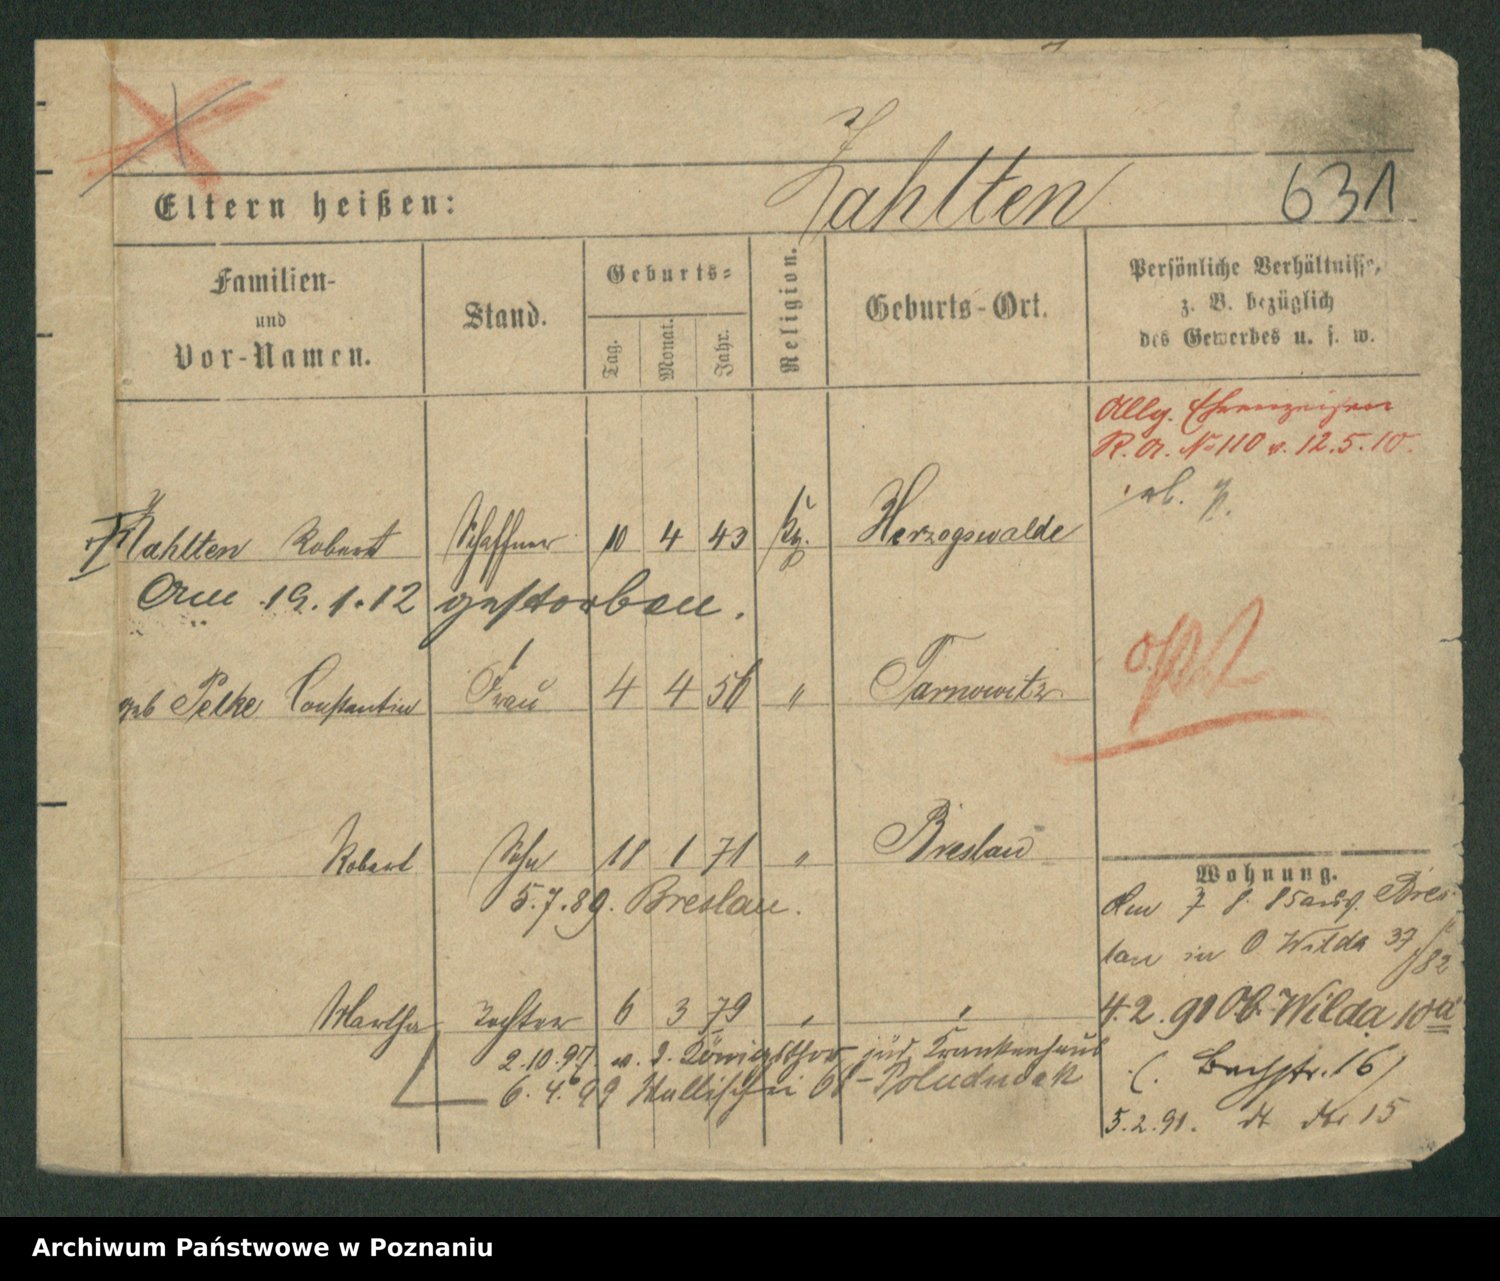 Zahlten
631
Eltern heißen:
Familien-
und
Vor-Namen.
Stand.
Geburts=
Tag.
Monat.
Jahr.
Religion.
Geburts-Ort.
Persönliche Verhältnisse,
z. B. bezüglich
des Gewerbes u. s. w.
Allg. Ehrenzeichen
R. A. No 110 v. 12.5.10.
Zahlten Robert Schaffner 10 4 43 Herzogswalde
Am 19.1.12 gestorben.
geb Pelke Constantin Frau 4 4 56 " Tarnowitz
Robert Sohn 11 1 71 " Breslau
5.7.89. Breslau.
Martha Tochter 6 3 79 " "
2.10.97. v. d. Königsthor jüd. Krankenhaus
6.4.99
Wohnung.
Am 7 8. 85 Bres-
lau in O Wilda 37/82
4.2.91 Ob. Wilda 10a
(. Bachstr. 16)
5.2.91. 15